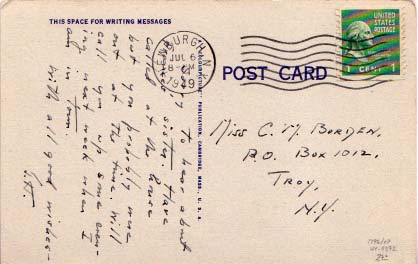 THIS SPACE FOR WRITING MESSAGES
to hear about
sister. Have
called at the house
but you possibly were
out at the time. Will
call you up some even-
ing next week when I
am in town.
With all good wishes-
JUL 6
8-PM
1949
N.Y.
POST CARD
UNITED
STATES
POSTAGE
1 CENT 1
Miss C. M. Borden,
P.O. Box 1012,
Troy,
N.Y.
PUBLICATION, CAMBRIDGE, MASS., U.S.A.